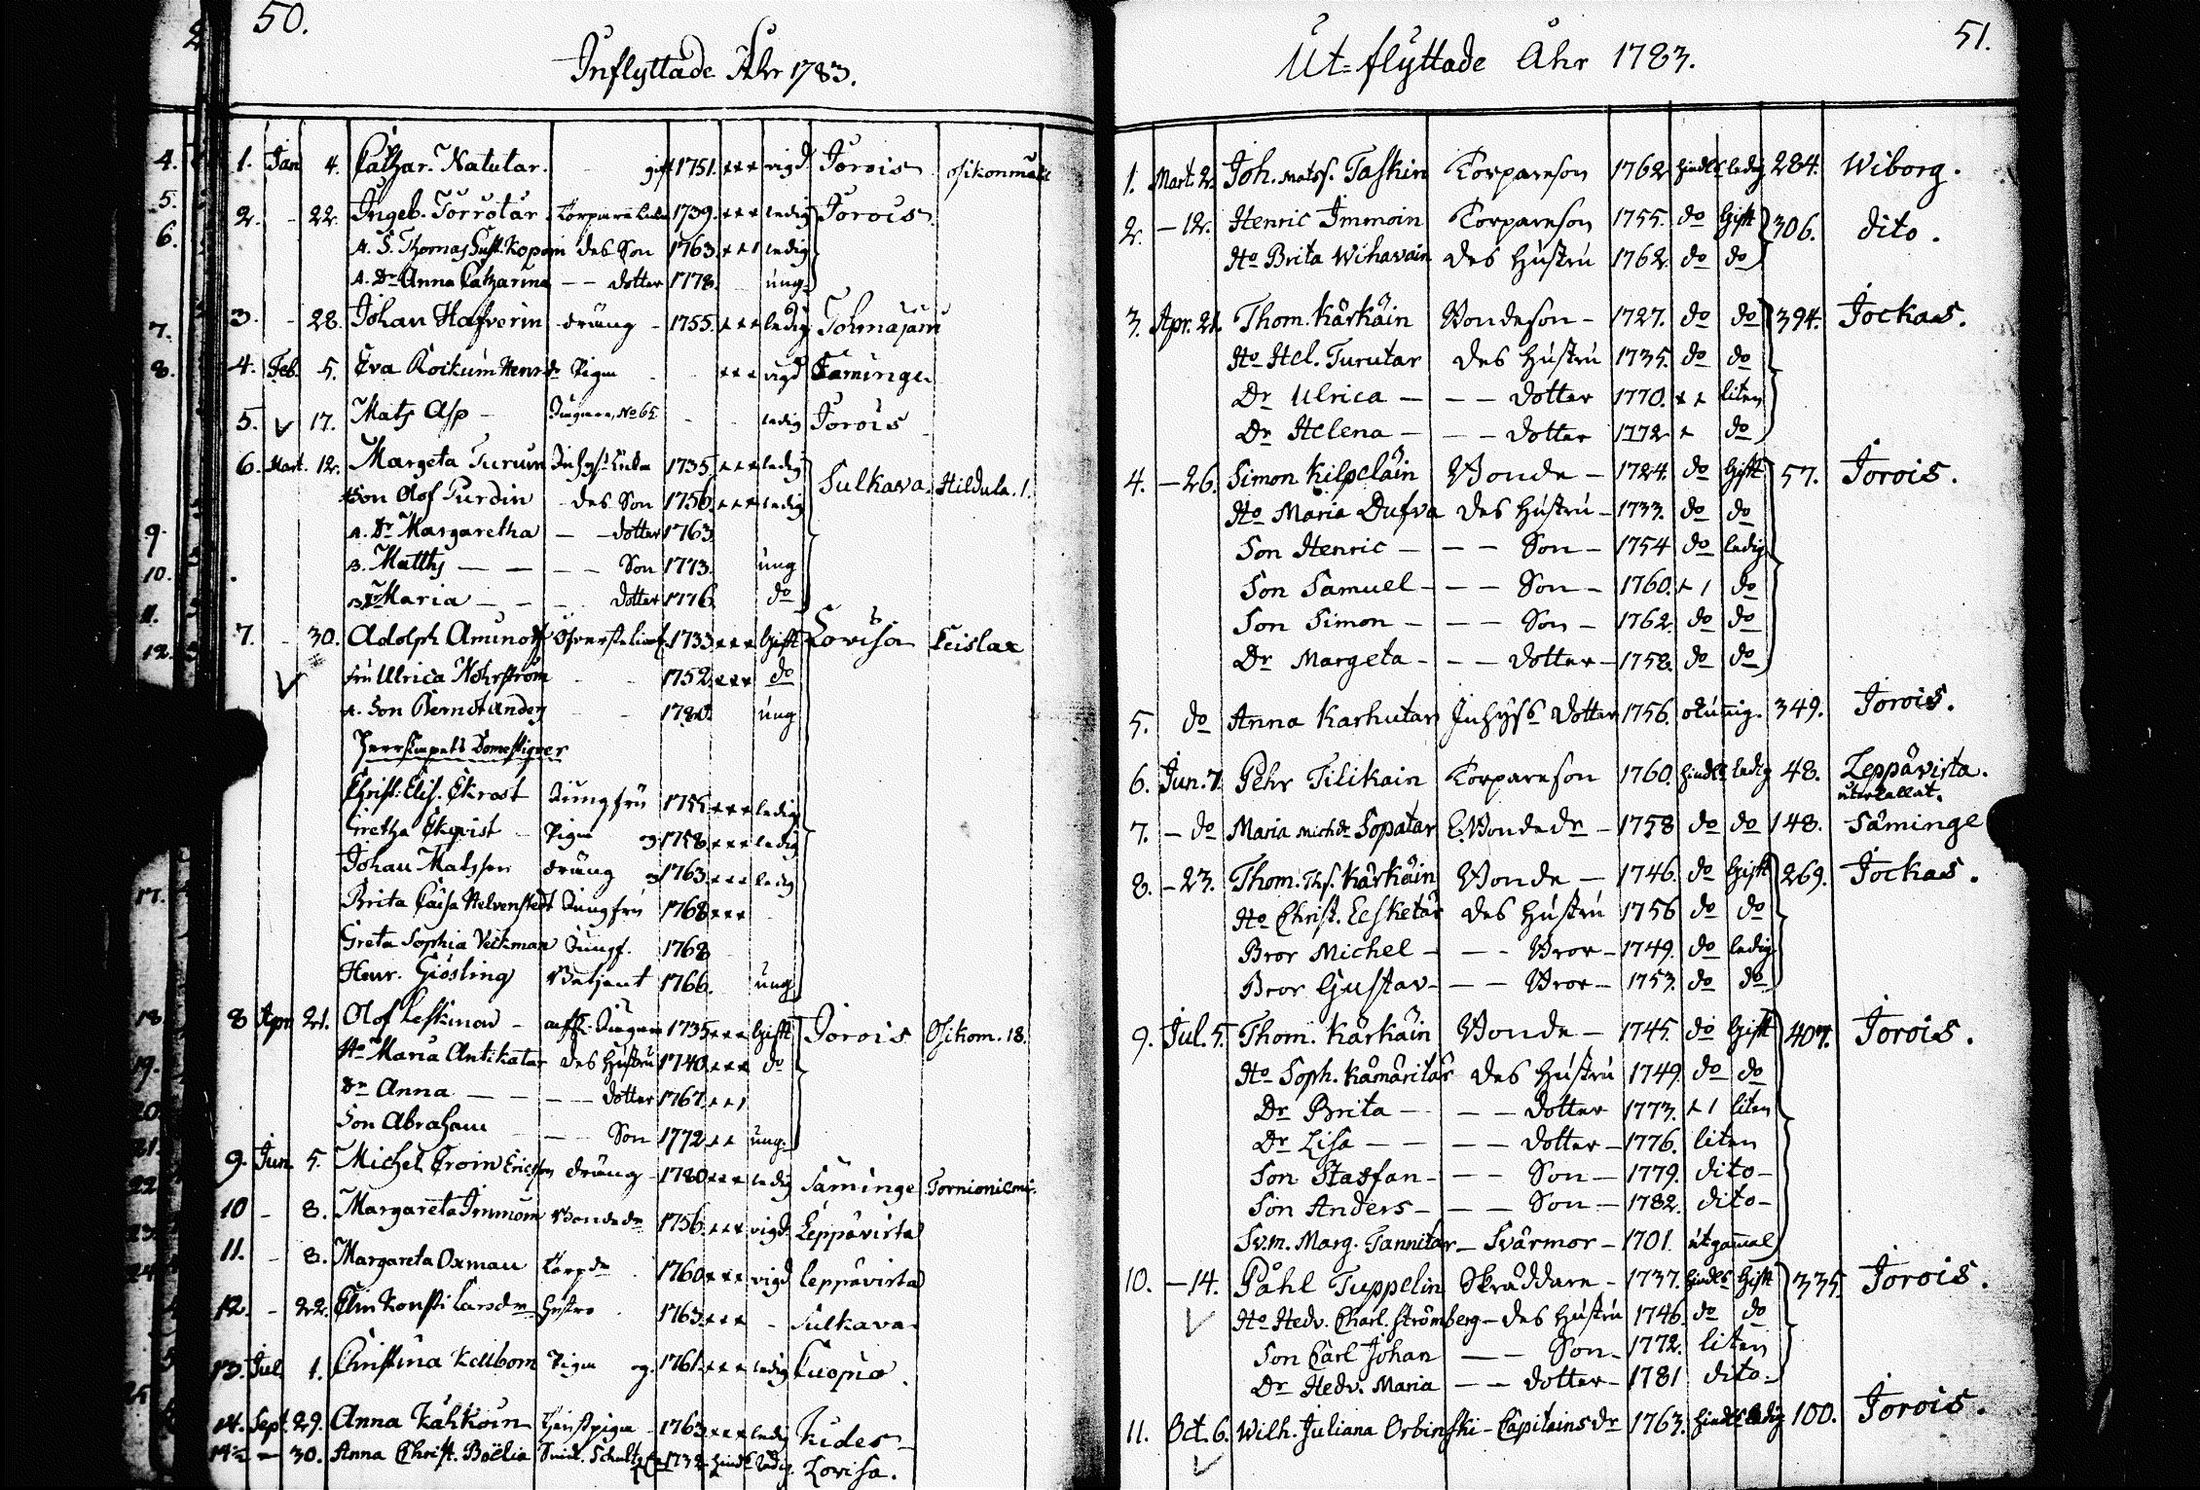 50.
Inflyttade Åhr 1783.
1. Jan 4. Cathar. Natutar. gift 1751. vigd Jorois
2. - 22. Ingeb. Torrotar 1739. ledig Jorois
A. S. Thomas Kopoin des Son 1763. ledig
A. Dr Anna Catharina - - dotter 1778. ung
3. - 28. Johan Hafverin dräng - 1755. ledig Tohmajärvi
4. Feb. 5. Eva Pigan vigd Säminge
5. 17. Mats Asp - No 65 ledig Jorois
6. Mart. 12. Margeta 1735. ledig Sulkava. Hildula. 1.
Son Olof Purdin des Son 1756. ledig
A. Dr Margaretha - - dotter 1763
B. Matths - - - - Son 1773. ung
Dr Maria - - - dotter 1776. do
7. - 30. Adolph Aminoff 1733. Gift Lovisa
Fru Ulrica 1752. do
A. Son Bernt 1780. ung
Herrskapets Domestiquer
Christ. Elis. Ekrost Jungfru 1755. ledig
Gretha Ekqvist Piga 1758. ledig
Johan Matsson dräng 1763. ledig
Brita Caisa Helvenstedt Jungfru 1768
Greta Sophia Veckman Jungf. 1768
Henr. Giösling Betjent 1766. ung
8 Apr. 21. Olof Leskinen 1735. Gift Jorois Osikon. 18.
Ho Maria Antikatar des Hustru 1740. do
Dr Anna - - - - dotter 1767.
Son Abraham - - Son 1772 ung.
9. Jun. 5. Michel Ericsson dräng - 1760 ledig Säminge
10 - 8. Margareta Immoin Bonde dr 1756. vigd Leppävirta
11. - 8. Margareta Oxman Torp dr 1760. vigd Leppävirta
12. - 22. Elin Larsdr 1763. - Sulkava
13. Jul. 1. Christina Kellbom Piga 1761. ledig Cuopio
14. Sept. 29. Anna Kähköin 1763. ledig Kides
14½ - 30. Anna Christ. Boëlia Schultz 1732. ledig. Lovisa.
51.
Ut-flyttade Åhr 1783.
1. Mart. 2. Joh. Matss. Taskin Torpareson 1762 Hindle ledig 284. Wiborg.
2. - 12. Henric Immoin Torpareson 1755. do Gift 306. dito.
Ho Brita Wihavain des Hustru 1762. do do
3. Apr. 21. Thom. Kärkäin Bondeson - 1727. do do 394. Jockas.
Ho Hel. Turutar des Hustru 1735. do do
Dr Ulrica - - - dotter 1770. liten
Dr Helena - - - dotter 1772 do
4. - 26. Simon Kilpeläin Bonde - 1724. do Gift 57. Jorois.
Ho Maria Dufva des Hustru - 1733. do do
Son Henric - - - Son - 1754 do ledig
Son Samuel - - - Son - 1760. do
Son Simon - - - Son - 1762. do do
Dr Margeta - - - dotter - 1758. do do
5. do Anna Karhutar Inhyss dotter 1756. okunnig. 349. Jorois.
6. Jun. 7. Pehr Tilikain Torpareson 1760. Hindle ledig 48. Leppävirta.
återkallat.
7. - do Maria Mich dr Sopatar E. Bonde dr - 1758 do do 148. Säminge
8. - 23. Thom. Ths. Kärkäin Bonde - 1746. do Gift 269. Jockas.
Ho Christ. Eesketär des Hustru 1756 do do
Bror Michel - - - Bror - 1749. do ledig
Bror Gustav - - - Bror - 1753. do do
9. Jul. 5. Thom. Kärkäin Bonde - 1745. do Gift 407. Jorois.
Ho Soph. Kämäritär des Hustru 1749. do do
Dr Brita - - - dotter 1773. liten
Dr Lisa - - - - dotter - 1776. liten
Son Staffan - - - Son - 1779. dito -
Son Anders - - - Son - 1782. dito -
Sv.m. Marg. Tannitar - Svärmor - 1701. utgammal
10. - 14. Påhl Tuppelin Skräddare - 1737. Hindle Gift 335. Jorois.
Ho Hedv. Charl. Strömberg - des Hustru 1746. do do
Son Carl Johan - - Son - 1772. liten
Dr Hedv. Maria - - dotter - 1781 dito -
11. Oct. 6. Wilh. Juliana Orbinski - Capitains dr 1763. Hindle ledig 100. Jorois.